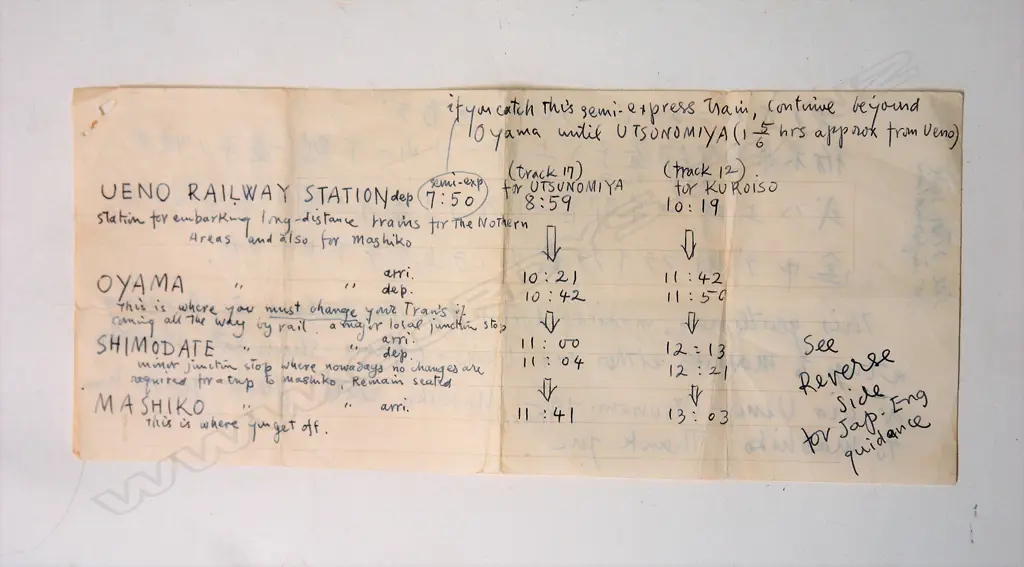 if you catch this semi-express train, continue beyound
Oyama until UTSUNOMIYA (1 5/6 hrs approx from Ueno)
(track 17) (track 12)
UENO RAILWAY STATION dep semi-exp 7:50 for UTSUNOMIYA 8:59 for KUROISO 10:19
station for embarking long-distance trains for The Nothern
Areas and also for Mashiko
OYAMA " " arri. 10:21 11:42
dep. 10:42 11:50
This is where you must change your Trains if
coming all The way by rail. a major local junction stop
SHIMODATE " " arri. 11:00 12:13
dep. 11:04 12:21
minor junction stop where nowadays no changes are
required for a trip to mashiko, Remain seated
MASHIKO " " arri. 11:41 13:03
This is where you get off.
See
Reverse
side
for Jap-Eng
guidance